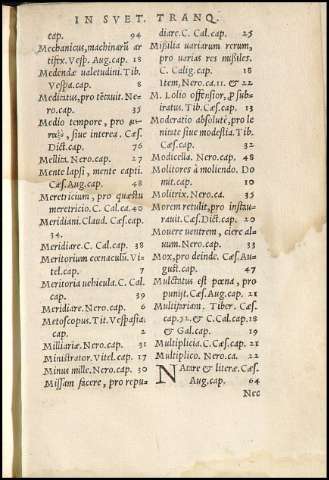 IN SVET. TRANQ.
cap. 94
Mechanicus, machinarū ar
tifix. Vesp. Aug. cap. 18
Medendæ ualetudini. Tib.
Vespa. cap. 8
Meditatus, pro tētauit. Ne-
ro. cap.
Medio tempore, pro
siue interea. Cæs.
Dict. cap. 76
Mellita. Nero. cap. 27
Mente lapsi, mente capti.
Cæs. Aug. cap. 48
Meretricium, pro quæstu
meretricio. C. Cal. ca. 40
Meridiani. Claud. Cæs. cap.
34.
Meridiare. C. Cal. cap. 38
Meritorium cœnaculū. Vi-
tel. cap. 7
Meritoria uehicula. C. Cal.
cap. 39
Meridiare. Nero. cap. 6
Metoscopus. Tit. Vespasiā.
cap. 2
Milliariæ. Nero. cap. 31
Ministrator. Vitel. cap. 17
Minus mille. Nero. cap. 30
Missam facere, pro repu-
diare. C. Cal. cap. 25
Missilia uariarum rerum,
pro uarias res missiles.
C. Calig. cap. 18
Item, Nero. ca. 11. & 22
M. Lolio offensior, p sub-
iratus. Tib. Cæs. cap. 13
Moderatio absolutè, pro le
nitate siue modestia. Tib.
Cæs. cap. 32
Modicella. Nero. cap. 48
Molitores à moliendo. Do
mit. cap. 10
Molitrix. Nero. ca. 35
Morem retulit, pro instau-
rauit. Cæs. Dict. cap. 20
Mouere uentrem, ciere al-
uum. Nero. cap. 33
Mox, pro deinde. Cæs. Au-
gust. cap. 47
Mulctatus est pœna, pro
punijt. Cæs. Aug. cap. 21
Multifariam. Tiber. Cæs.
cap. 32. & C. Cal. cap. 18
& Gal. cap. 19
Multiplicia. C. Cæs. cap. 21
Multiplico. Nero. ca. 22
NAtare & literæ. Cæs.
Aug. cap. 64
Nec